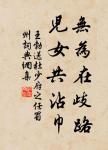 無為在歧路
兒女共沾巾
王勃送杜少府之任蜀
州詞典網集